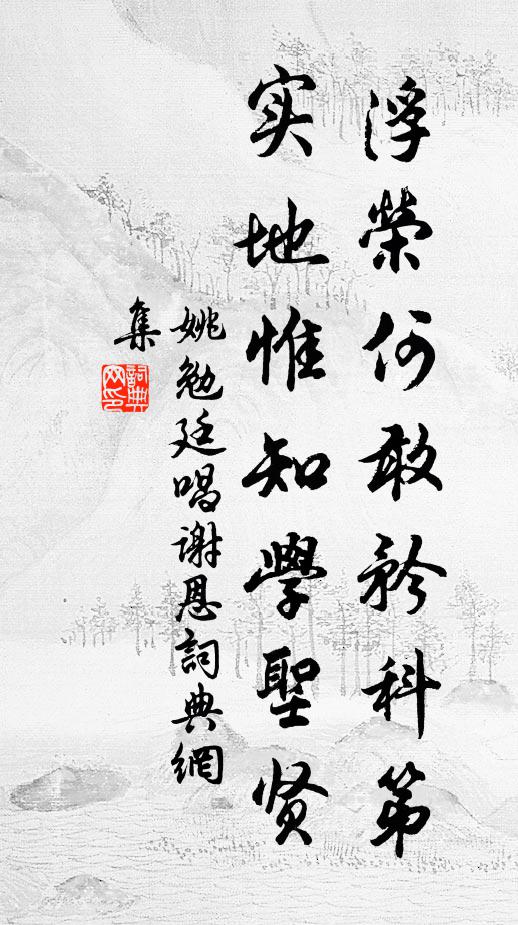 浮榮何敢矜科第
实地惟知學聖贤
姚勉廷唱谢恩詞典網
集
詞典
网印